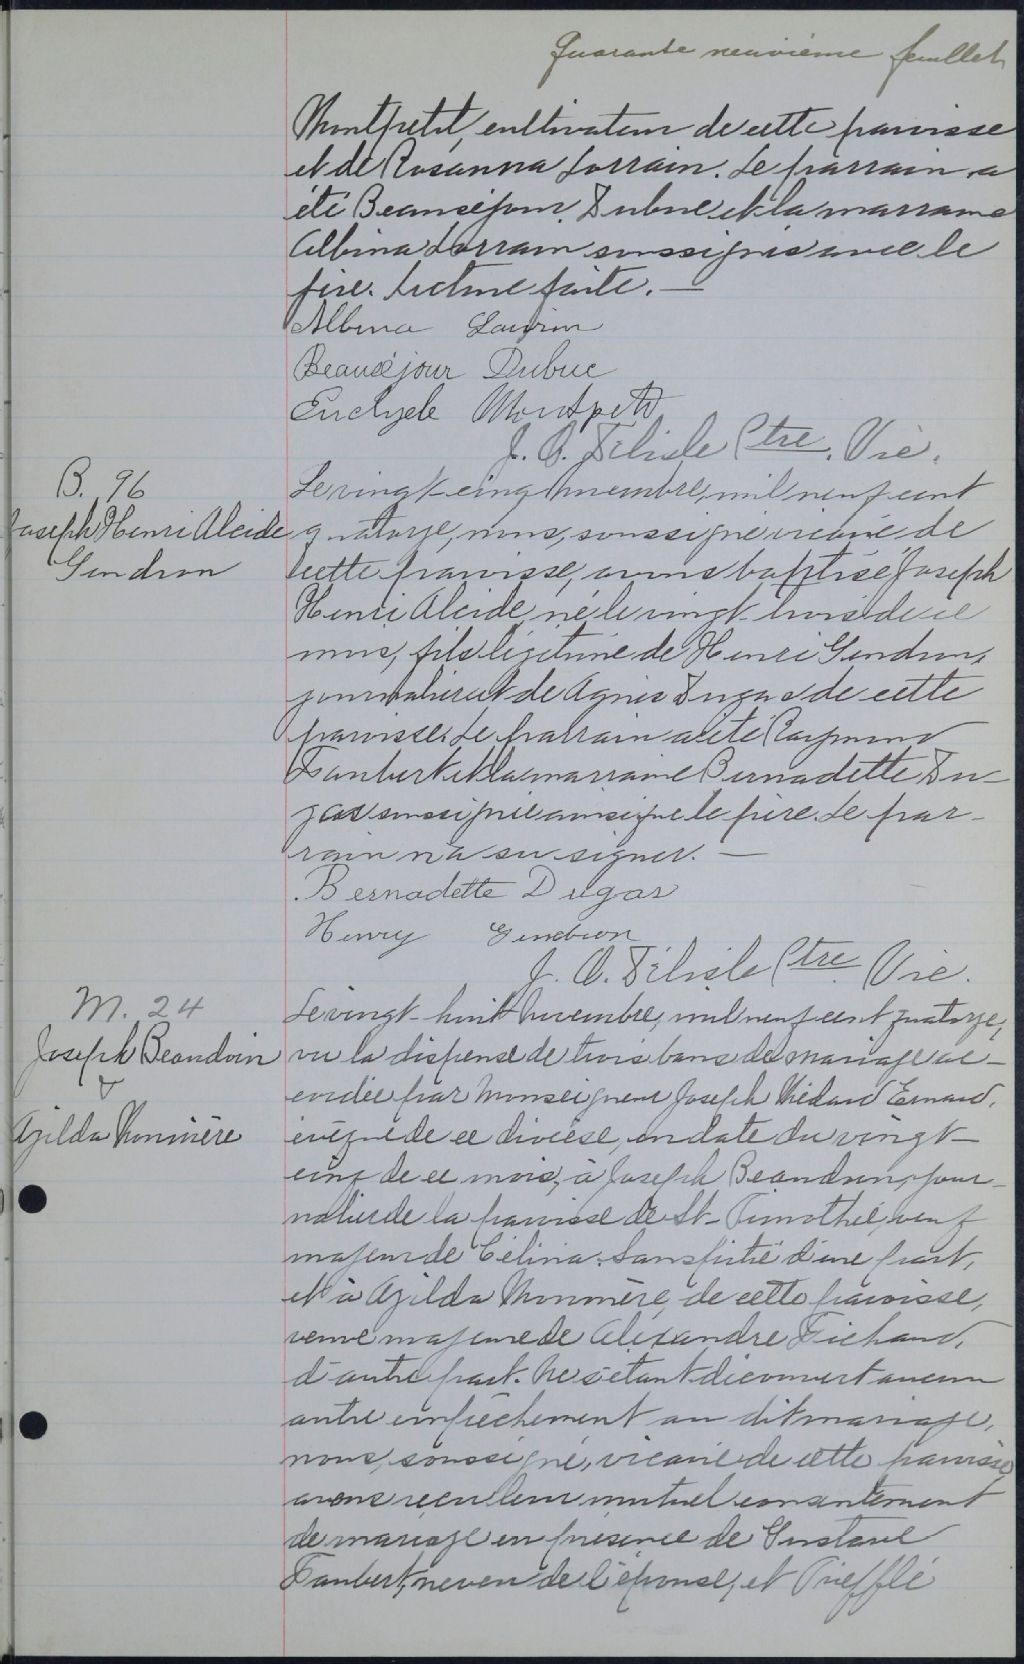 Quarante neuvième feuillet
Montpetit, cultivateur de cette paroisse
et de Rosanna Lorrain. Le parrain a
été Beauséjour Dubuc et la marraine
Albina Lorrain soussignés avec le
père. Lecture faite. —
Albina Lorrin
Beauséjour Dubuc
Euclyde Montpetit
J. O. Délisle Ptre. Vic.
B. 96
Joseph Henri Alcide
Gendron
Le vingt-cinq novembre, mil neuf cent
quatorze, nous, soussigné vicaire de
cette paroisse, avons baptisé Joseph
Henri Alcide, né le vingt-trois de ce
mois, fils légitime de Henri Gendron,
journalier et de Agnès Dugas de cette
paroisse. Le parrain a été Raymond
Faubert et la marraine Bernadette Du-
gas soussignée ainsi que le père. Le par-
rain n'a su signer. —
Bernadette Dugas
Henry Gendron
J. O. Délisle Ptre. Vic.
M. 24
Joseph Beaudoin
&
Azilda Monmière
Le vingt-huit novembre, mil neuf cent quatorze,
vu la dispense de trois bans de mariage ac-
cordée par Monseigneur Joseph Médard Emard,
évêque de ce diocèse, en date du vingt-
cinq de ce mois, à Joseph Beaudoin, jour-
nalier de la paroisse de St-Timothé, veuf
majeur de Célina d'une part,
et à Azilda Monmière, de cette paroisse,
veuve majeure de Aléxandre
d'autre part. Ne s'étant découvert aucun
autre empêchement au dit mariage,
nous, soussigné, vicaire de cette paroisse,
avons reçu leur mutuel consentement
de mariage en présence de Gustave
Faubert, neveu de l'épouse, et Trefflé